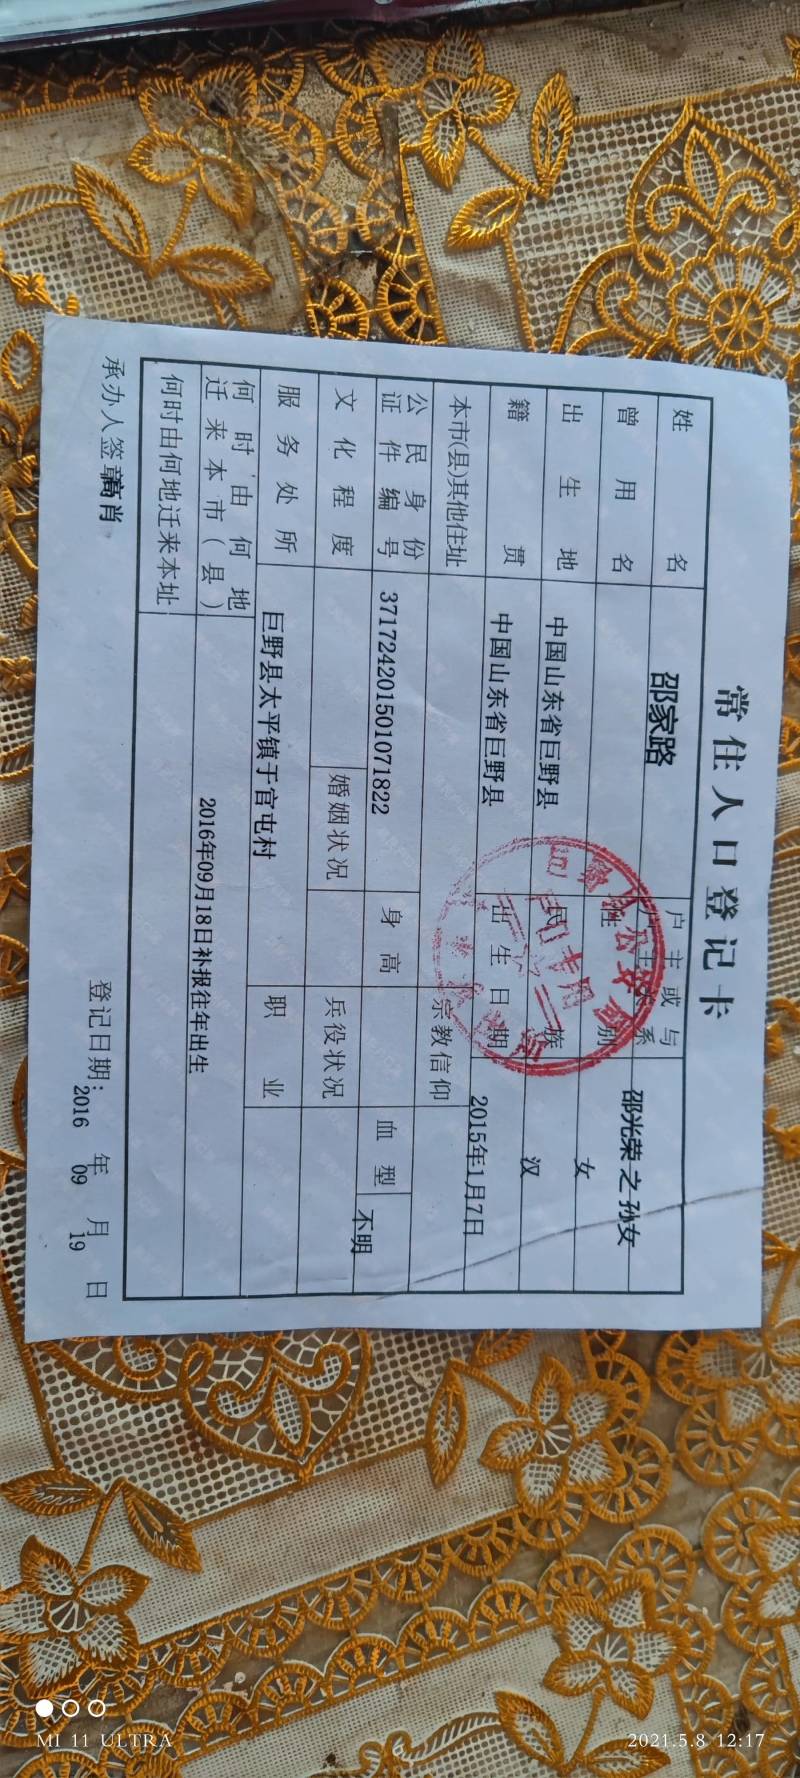 常住人口登记卡
姓名 邵家路 户主或与户主关系 邵光荣之孙女
曾用名 性别 女
出生地 中国山东省巨野县 民族 汉
籍贯 中国山东省巨野县 出生日期 2015年1月7日
本市(县)其他住址 宗教信仰
公民身份证件编号 371724201501071822 身高 血型 不明
文化程度 婚姻状况 兵役状况
服务处所 巨野县太平镇于官屯村 职业
何时由何地迁来本市(县) 2016年09月18日补报往年出生
何时由何地迁来本址
承办人签章 高肖 登记日期: 2016 年 09 月 19 日
MI 11 ULTRA
2021.5.8 12:17